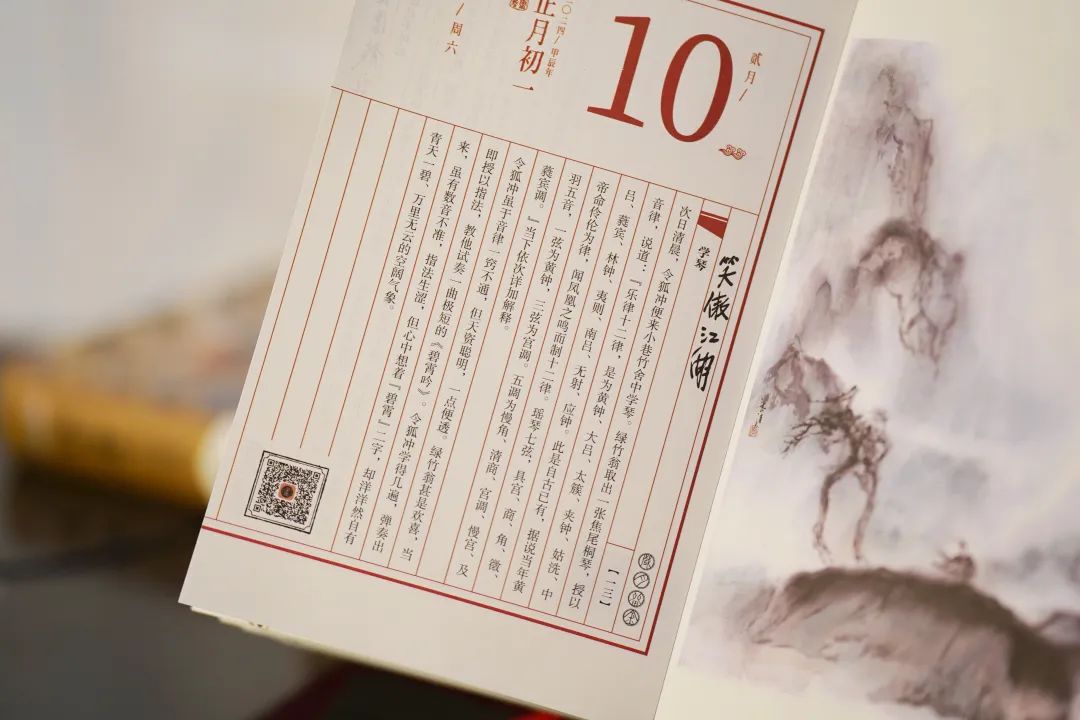 贰月/
10
二〇二四/甲辰年
正月初一
/周六
笑傲江湖
学琴
【一三】
次日清晨，令狐冲便来小巷竹舍中学琴。绿竹翁取出一张焦尾桐琴，授以
音律，说道：『乐律十二律，是为黄钟、大吕、太簇、夹钟、姑洗、中
吕、蕤宾、林钟、夷则、南吕、无射、应钟。此是自古已有，据说当年黄
帝命伶伦为律，闻凤凰之鸣而制十二律。瑶琴七弦，具宫、商、角、徵、
羽五音，一弦为黄钟，三弦为宫调。五调为慢角、清商、宫调、慢宫、及
蕤宾调。』当下依次详加解释。
令狐冲虽于音律一窍不通，但天资聪明，一点便透。绿竹翁甚是欢喜，当
即授以指法，教他试奏一曲极短的《碧霄吟》。令狐冲学得几遍，弹奏出
来，虽有数音不准，指法生涩，但心中想着『碧霄』二字，却洋洋然自有
青天一碧、万里无云的空阔气象。